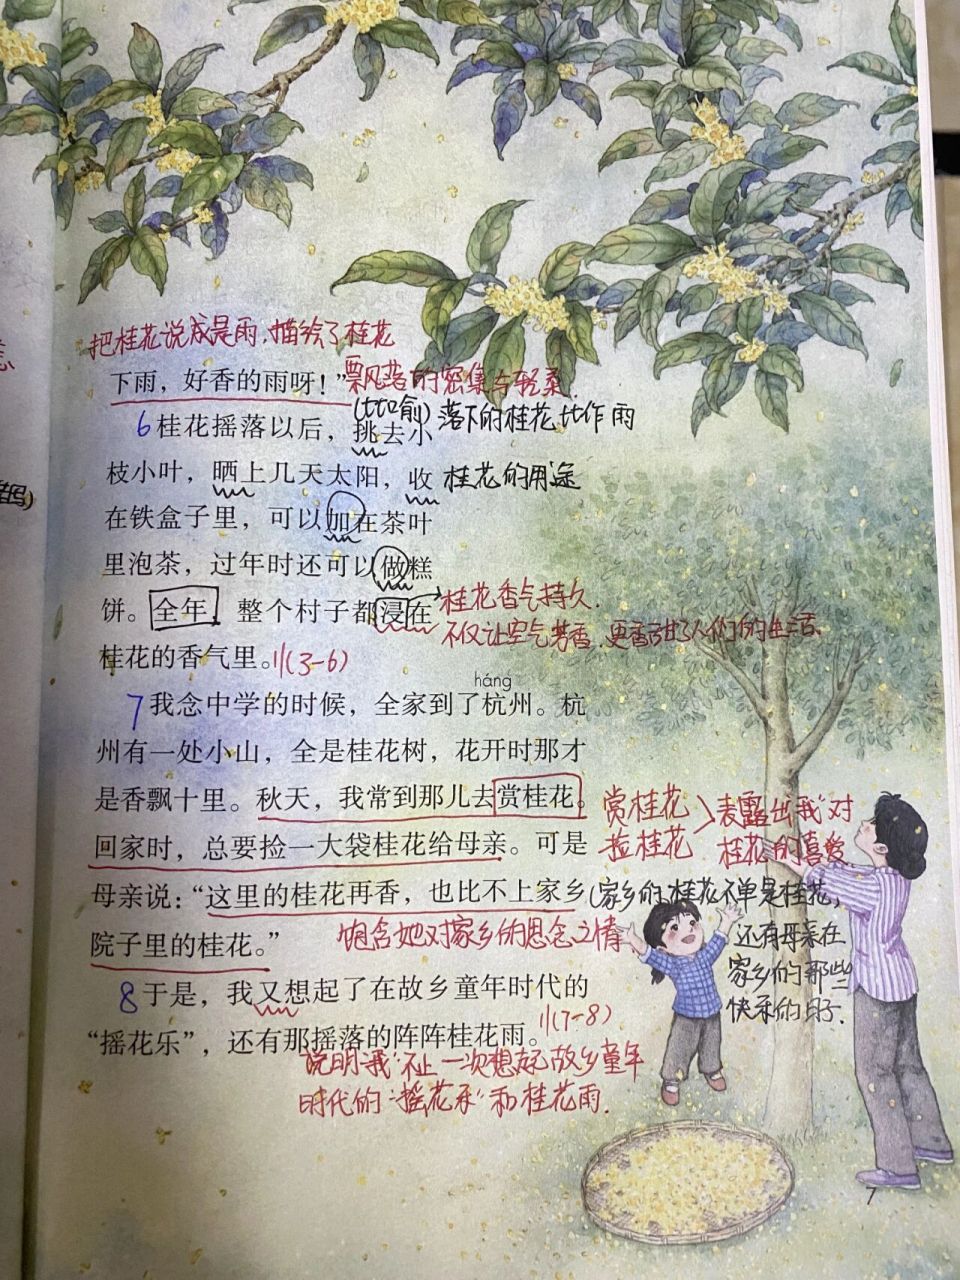 把桂花说成是雨，描绘了桂花
下雨，好香的雨呀！”飘落的密集与轻柔.
(比喻) 落下的桂花比作雨
6 桂花摇落以后，挑去小
枝小叶，晒上几天太阳，收 桂花的用途
在铁盒子里，可以加在茶叶
里泡茶，过年时还可以做糕
饼。全年，整个村子都浸在 桂花香气持久.
不仅让空气芳香，更香甜了人们的生活.
桂花的香气里。 11(3-6)
háng
7 我念中学的时候，全家到了杭州。杭
州有一处小山，全是桂花树，花开时那才
是香飘十里。秋天，我常到那儿去赏桂花。 赏桂花
表露出“我”对
回家时，总要捡一大袋桂花给母亲。可是 捡桂花
桂花的喜爱
母亲说：“这里的桂花再香，也比不上家乡 (家乡的桂花不单是桂花，
院子里的桂花。” 饱含她对家乡的思念之情
还有母亲在
家乡的那些
快乐的日子.
8 于是，我又想起了在故乡童年时代的
“摇花乐”，还有那摇落的阵阵桂花雨。 11(7-8)
说明“我”不止一次想起故乡童年
时代的“摇花乐”和桂花雨.
7